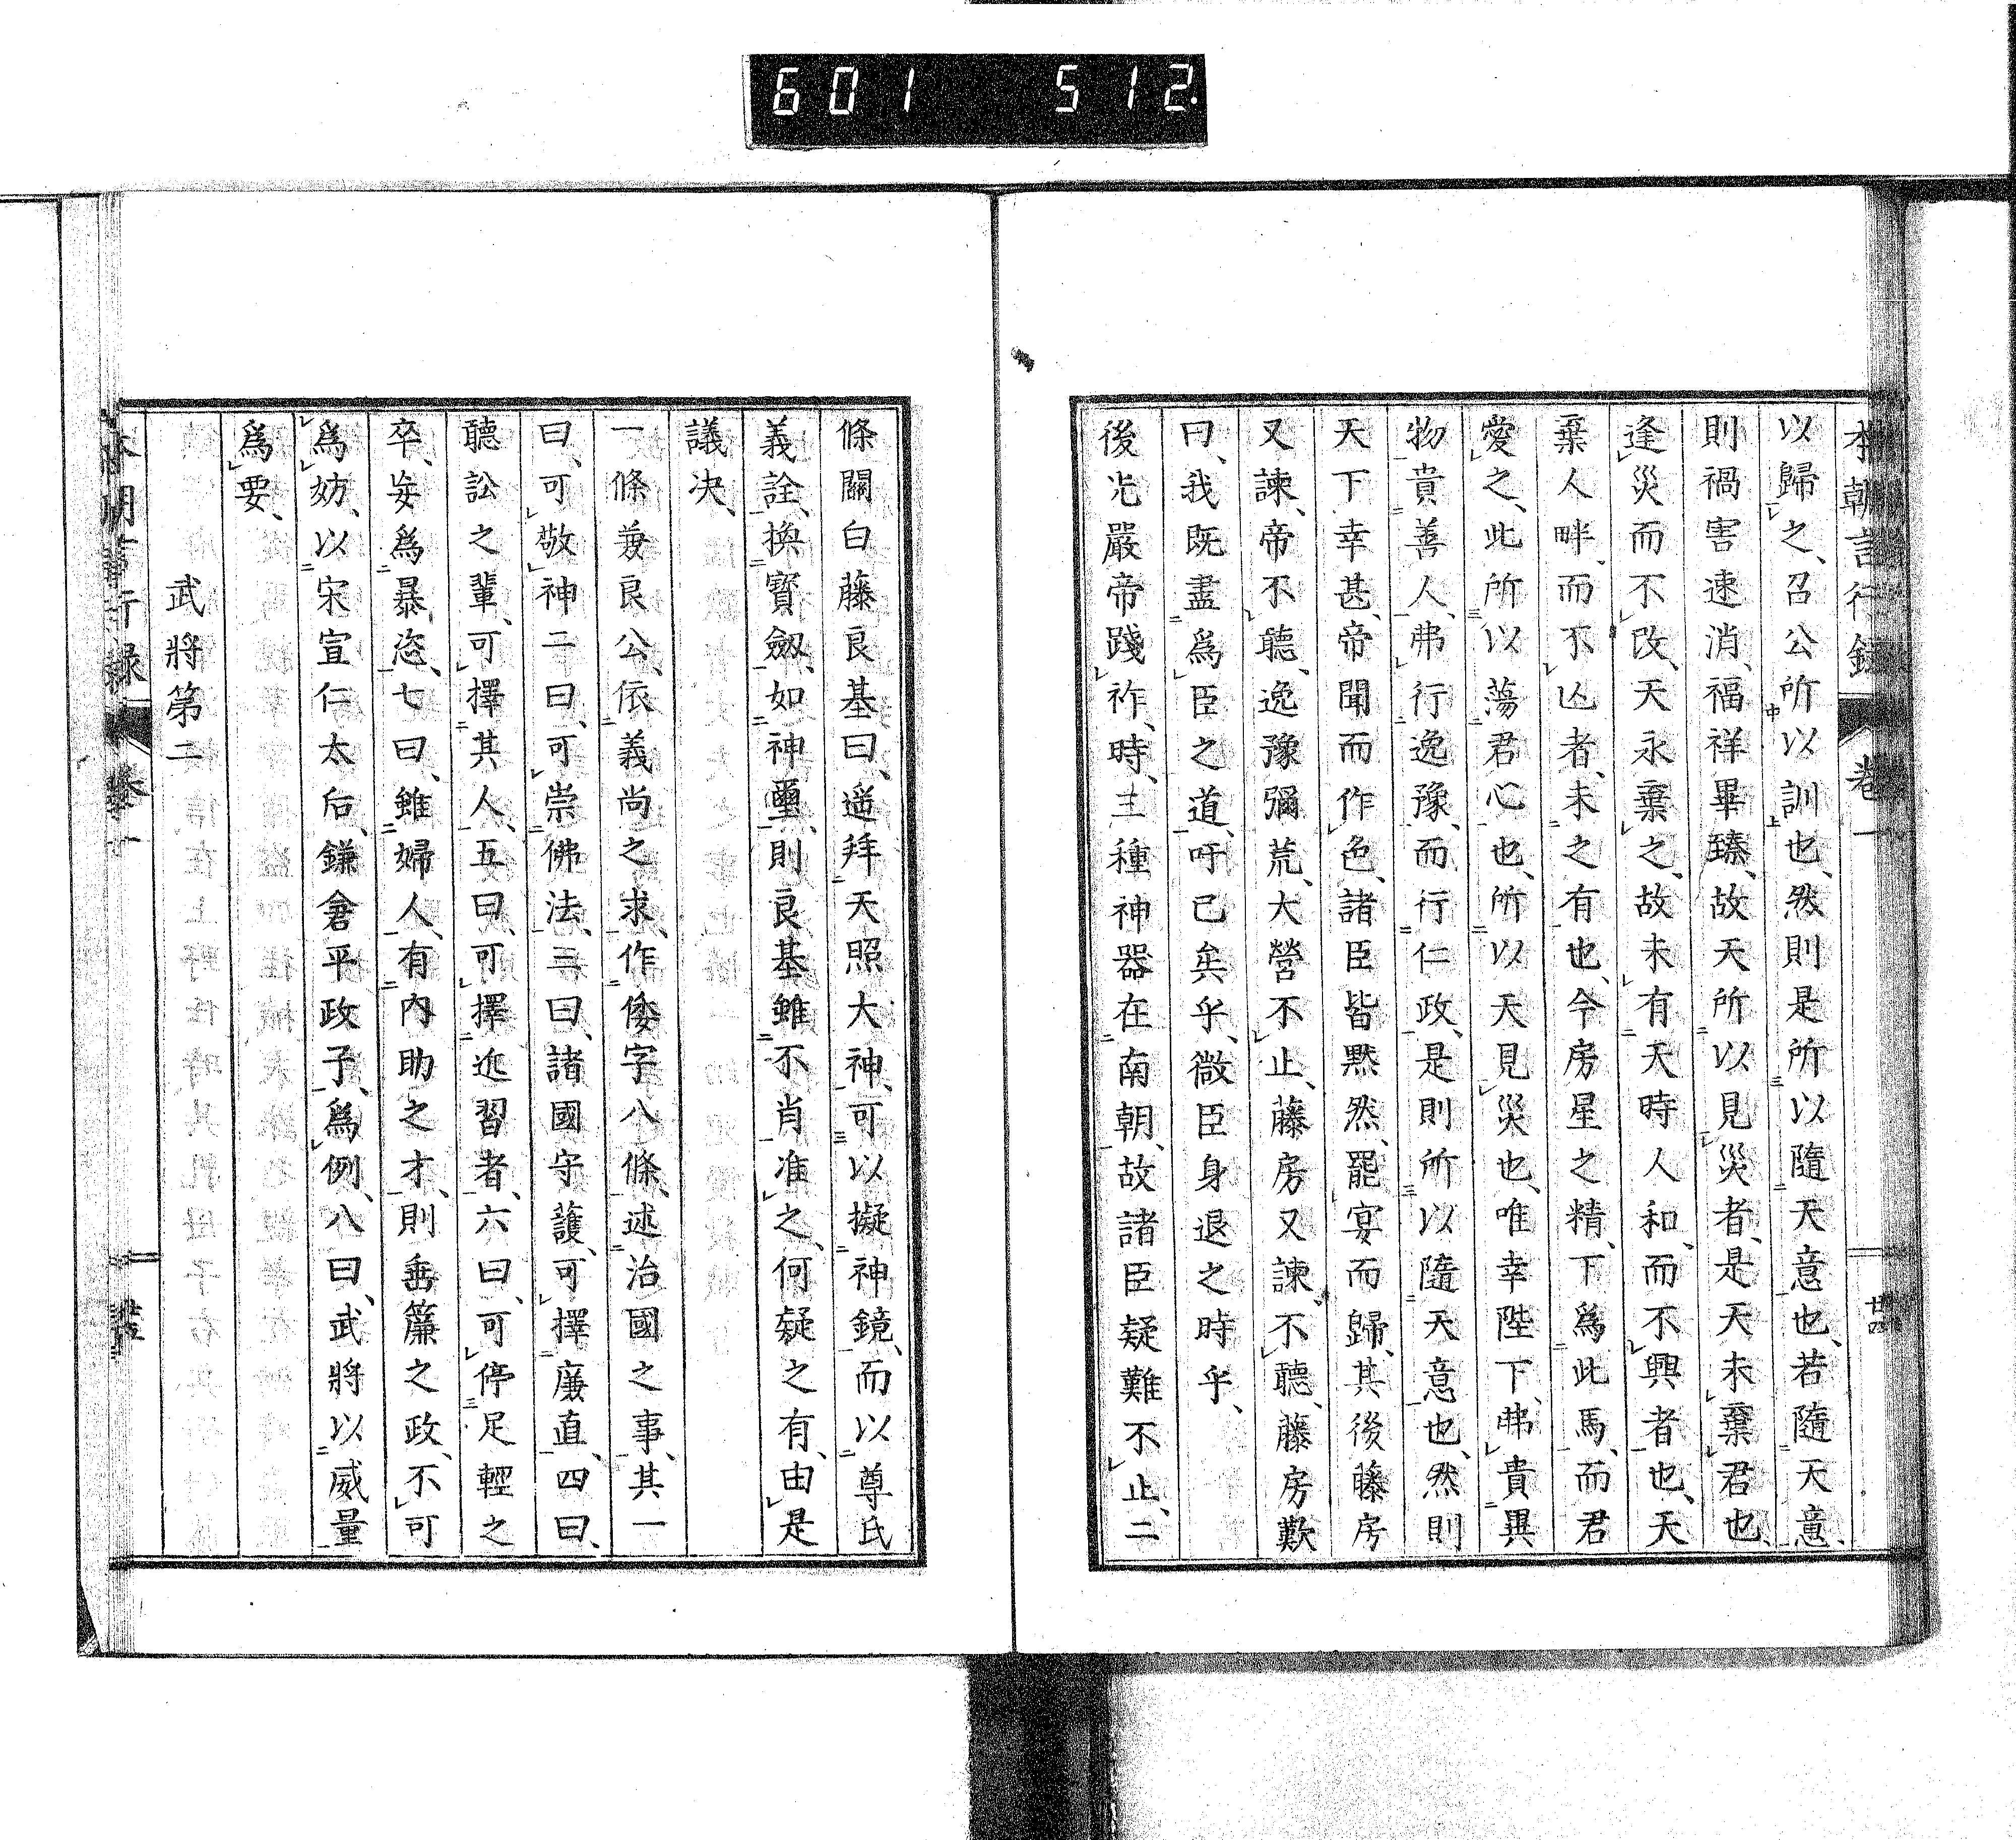 601 512
本朝言行錄 卷一 廿四
以歸之、召公所以訓也、然則是所以隨天意也、若隨天意、
則禍害速消、福祥畢臻、故天所以見災者、是天未棄君也、
逢災而不改、天永棄之、故未有天時人和、而不興者也、天
棄人畔、而不亾者、未之有也、今房星之精、下爲此馬、而君
愛之、此所以蕩君心也、所以天見災也、唯幸陛下、弗貴異
物貴善人、弗行逸豫、而行仁政、是則所以隨天意也、然則
天下幸甚、帝聞而作色、諸臣皆默然、罷宴而歸、其後藤房
又諫、帝不聽、逸豫彌荒、大營不止、藤房又諫、不聽、藤房歎
曰、我既盡爲臣之道、吁已矣乎、微臣身退之時乎、
後光嚴帝踐祚、時、三種神器在南朝、故諸臣疑難不止、二
條關白藤良基曰、遥拜天照大神、可以擬神鏡、而以尊氏
義詮、換寶劔、如神璽、則良基雖不肖、准之、何疑之有、由是
議决、
一條兼良公、依義尚之求、作倭字八條、述治國之事、其一
曰、可敬神二曰、可崇佛法、三曰、諸國守護、可擇廉直、四曰、
聽訟之輩、可擇其人、五曰、可擇近習者、六曰、可停足輕之
卒、妄爲暴恣、七曰、雖婦人、有內助之才、則垂簾之政、不可
爲妨、以宋宣仁太后、鎌倉平政子、爲例、八曰、武將以威量
爲要、
武將第二
本朝言行錄 卷一